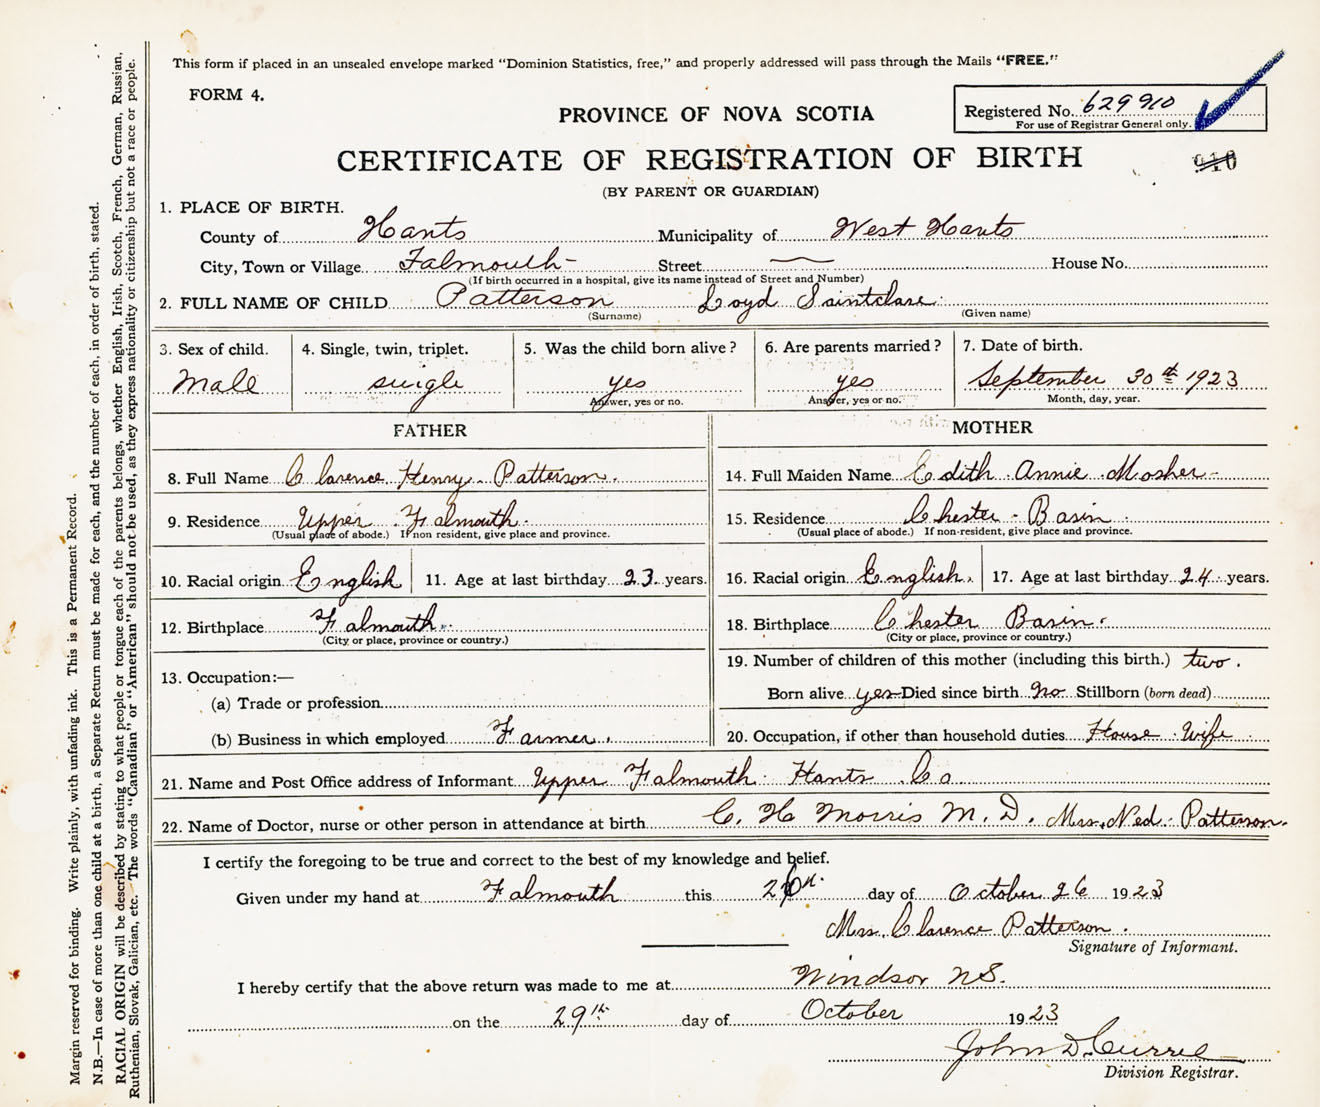 This form if placed in an unsealed envelope marked "Dominion Statistics, free," and properly addressed will pass through the Mails "FREE."
FORM 4.
Registered No. 629910
For use of Registrar General only.
PROVINCE OF NOVA SCOTIA
CERTIFICATE OF REGISTRATION OF BIRTH
910
(BY PARENT OR GUARDIAN)
1. PLACE OF BIRTH.
County of Hants Municipality of West Hants
City, Town or Village Falmouth Street — House No.
(If birth occurred in a hospital, give its name instead of Street and Number)
2. FULL NAME OF CHILD Patterson Loyd Saintclare
(Surname) (Given name)
3. Sex of child. 4. Single, twin, triplet. 5. Was the child born alive? 6. Are parents married? 7. Date of birth.
Male single yes yes September 30th 1923
Answer, yes or no. Answer, yes or no. Month, day, year.
FATHER
8. Full Name Clarence Henry Patterson.
9. Residence Upper Falmouth.
(Usual place of abode.) If non resident, give place and province.
10. Racial origin English 11. Age at last birthday 23 years.
12. Birthplace Falmouth.
(City or place, province or country.)
13. Occupation:—
(a) Trade or profession
(b) Business in which employed Farmer.
MOTHER
14. Full Maiden Name Edith Annie Mosher
15. Residence Chester Basin.
(Usual place of abode.) If non-resident, give place and province.
16. Racial origin English. 17. Age at last birthday 24 years.
18. Birthplace Chester Basin.
(City or place, province or country.)
19. Number of children of this mother (including this birth.) two.
Born alive yes Died since birth no Stillborn (born dead)
20. Occupation, if other than household duties House Wife
21. Name and Post Office address of Informant Upper Falmouth Hants Co
22. Name of Doctor, nurse or other person in attendance at birth C. H Morris M. D. Mrs. Ned Patterson.
I certify the foregoing to be true and correct to the best of my knowledge and belief.
Given under my hand at Falmouth this 26th day of October 26 1923
Mrs. Clarence Patterson.
Signature of Informant.
I hereby certify that the above return was made to me at Windsor N.S.
on the 29th day of October 1923
John D. Currie
Division Registrar.
Margin reserved for binding. Write plainly, with unfading ink. This is a Permanent Record.
N.B.—In case of more than one child at a birth, a Separate Return must be made for each, and the number of each, in order of birth, stated.
RACIAL ORIGIN will be described by stating to what people or tongue each of the parents belongs, whether English, Irish, Scotch, French, German, Russian,
Ruthenian, Slovak, Galician, etc. The words "Canadian" or "American" should not be used, as they express nationality or citizenship but not a race or people.